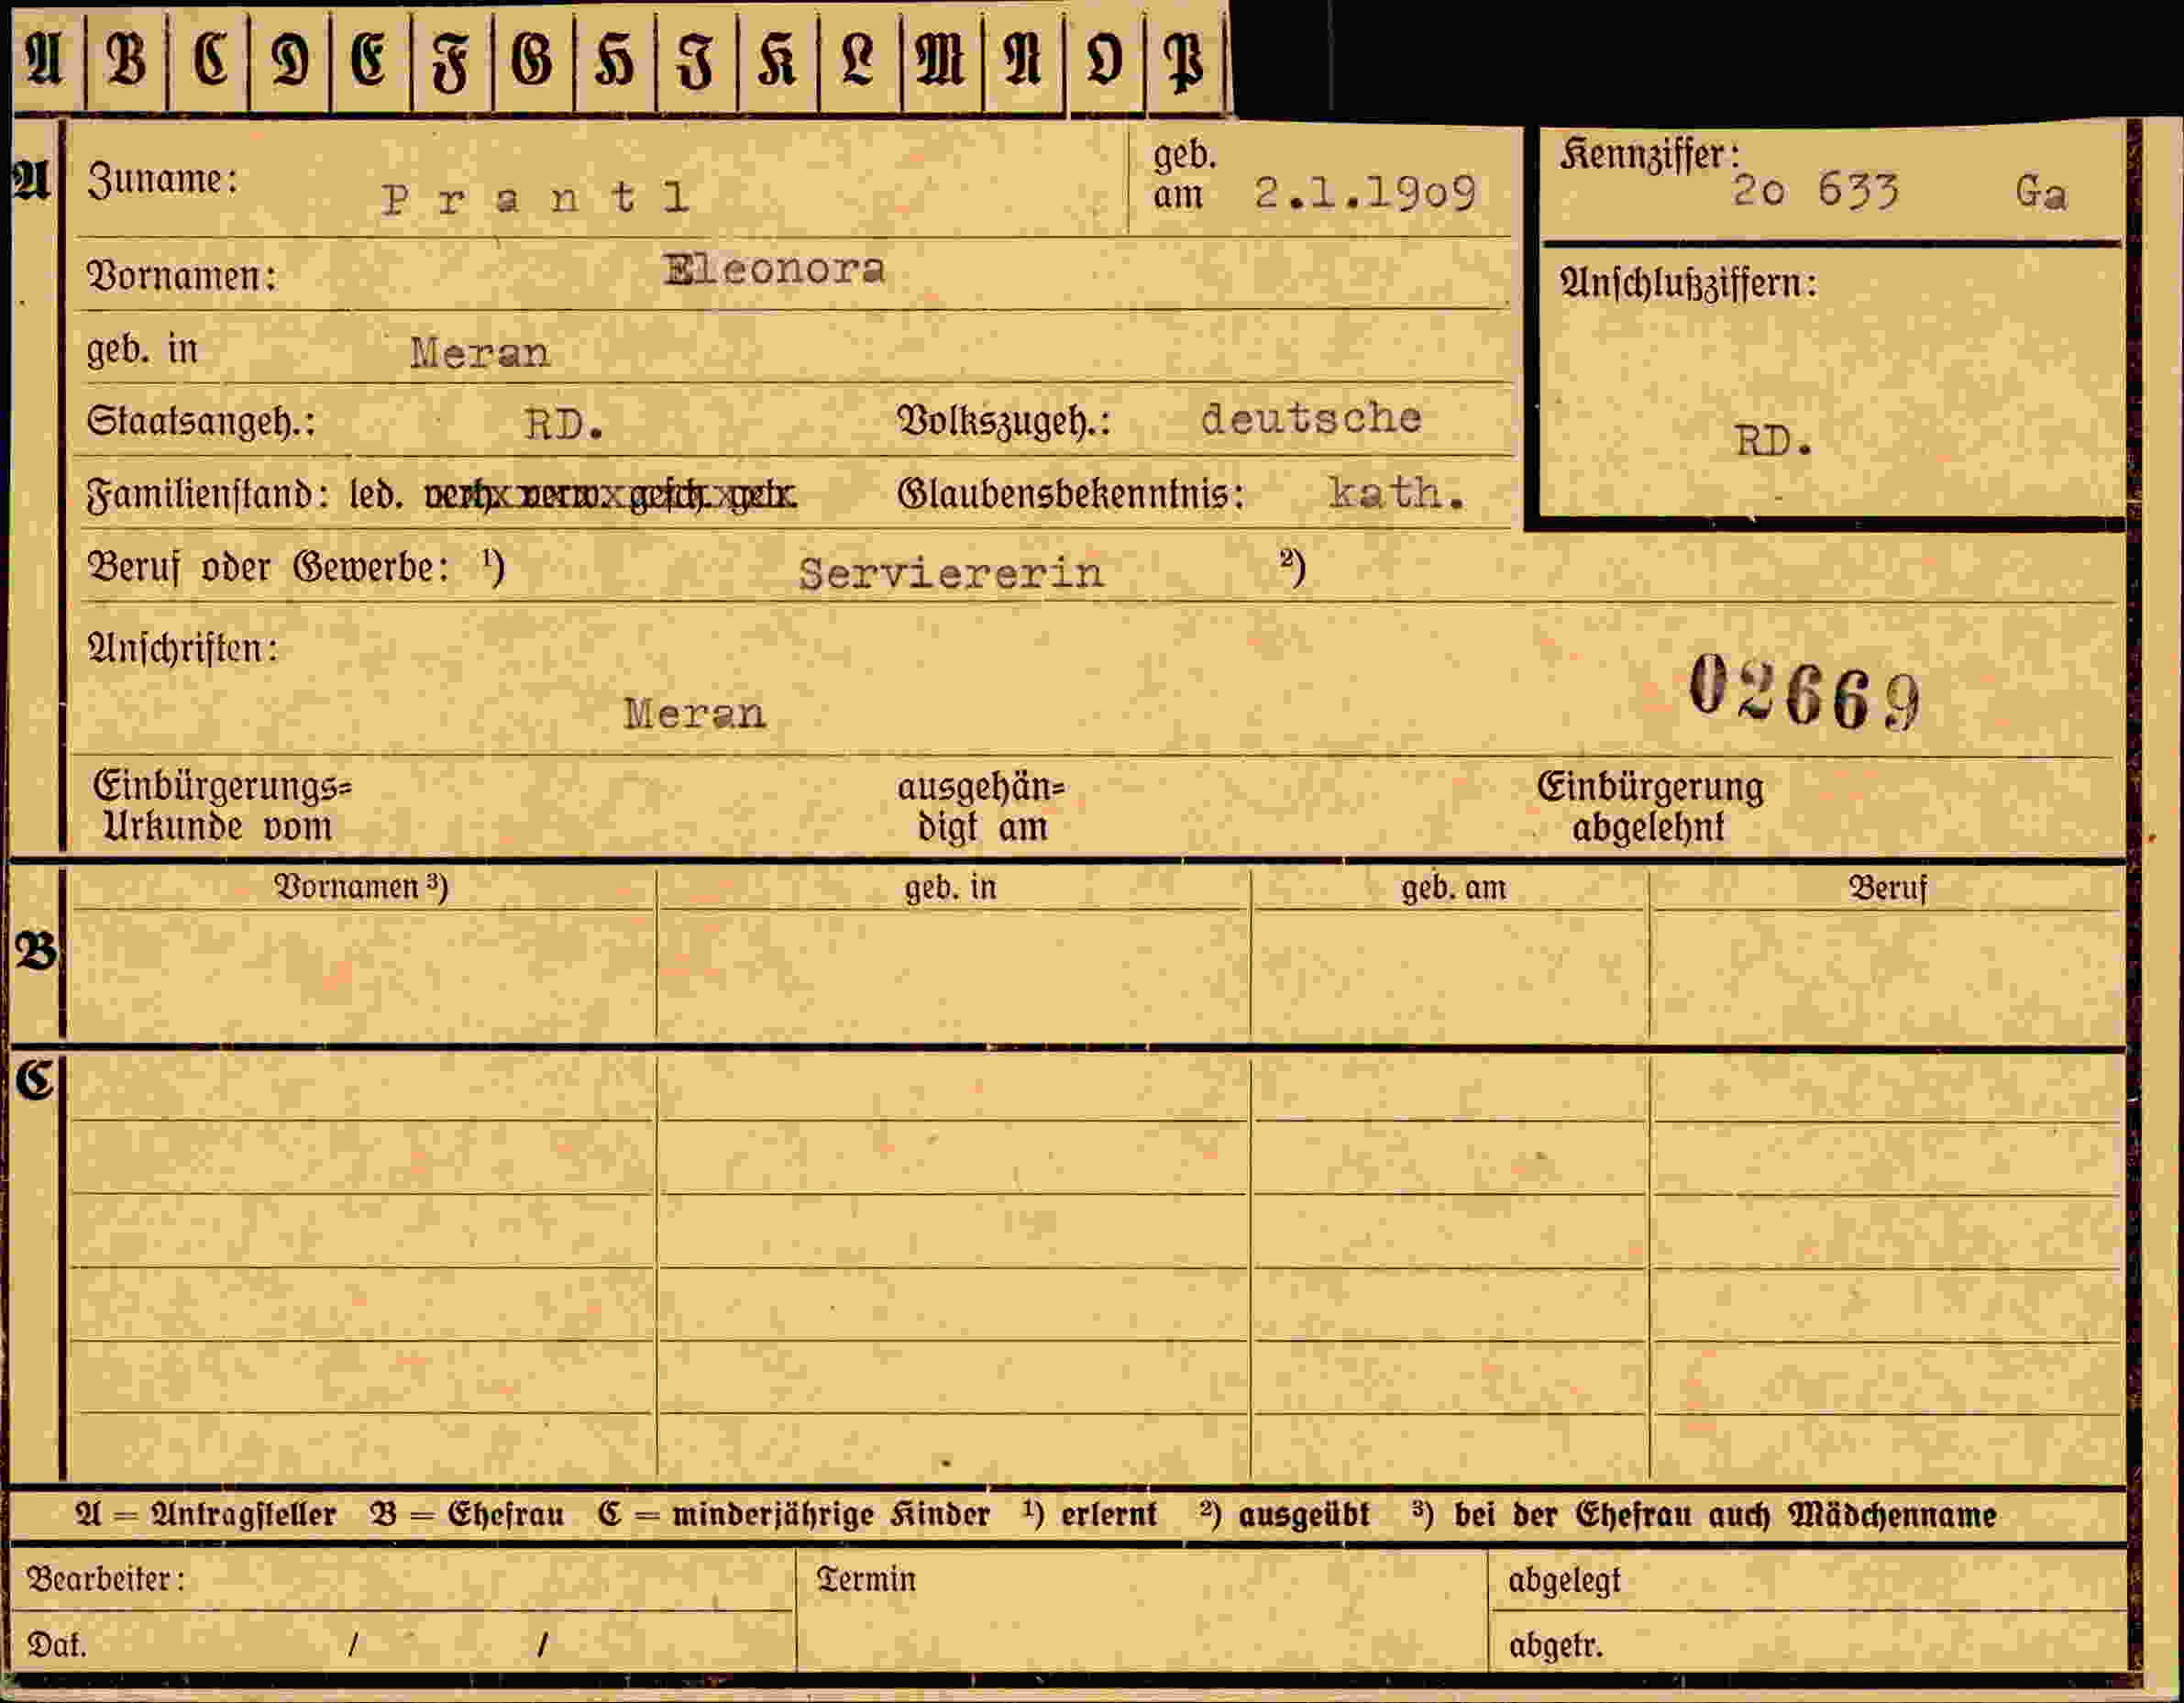 A B C D E F G H I K L M N O P
A Zuname: Prantl geb. am 2.1.1909 Kennziffer: 2o 633 Ga
Vornamen: Eleonora Anschlußziffern:
geb. in Meran
Staatsangeh.: RD. Volkszugeh.: deutsche RD.
Familienstand: led. verh. verw. gesch. getr. Glaubensbekenntnis: kath.
Beruf oder Gewerbe: ¹) Serviererin ²)
Anschriften:
Meran 02669
Einbürgerungs= ausgehän= Einbürgerung
Urkunde vom digt am abgelehnt
Vornamen ³) geb. in geb. am Beruf
B
C
A = Antragsteller B = Ehefrau C = minderjährige Kinder ¹) erlernt ²) ausgeübt ³) bei der Ehefrau auch Mädchenname
Bearbeiter: Termin abgelegt
Dat. / / abgetr.